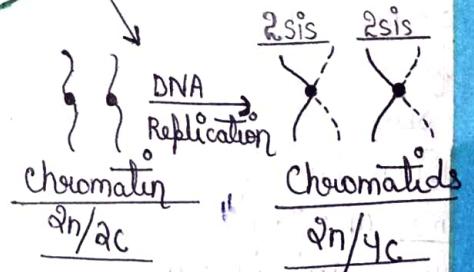 2sis 2sis
DNA
Replication
Chromatin
Chromatids
2n/2c
2n/4c